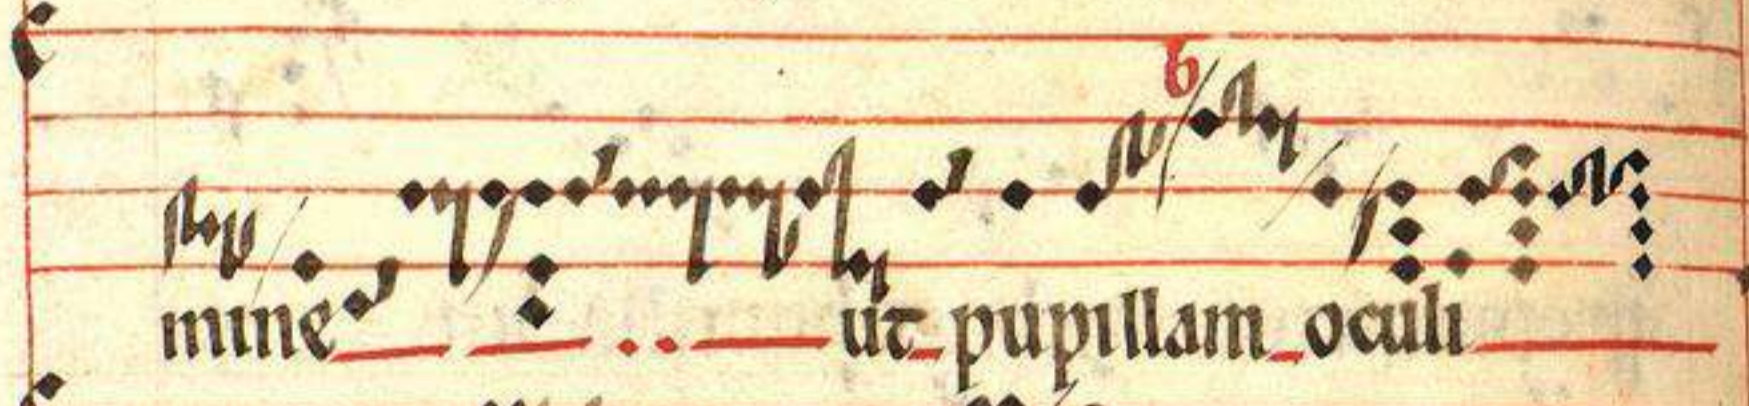 b
mine ut pupillam oculi